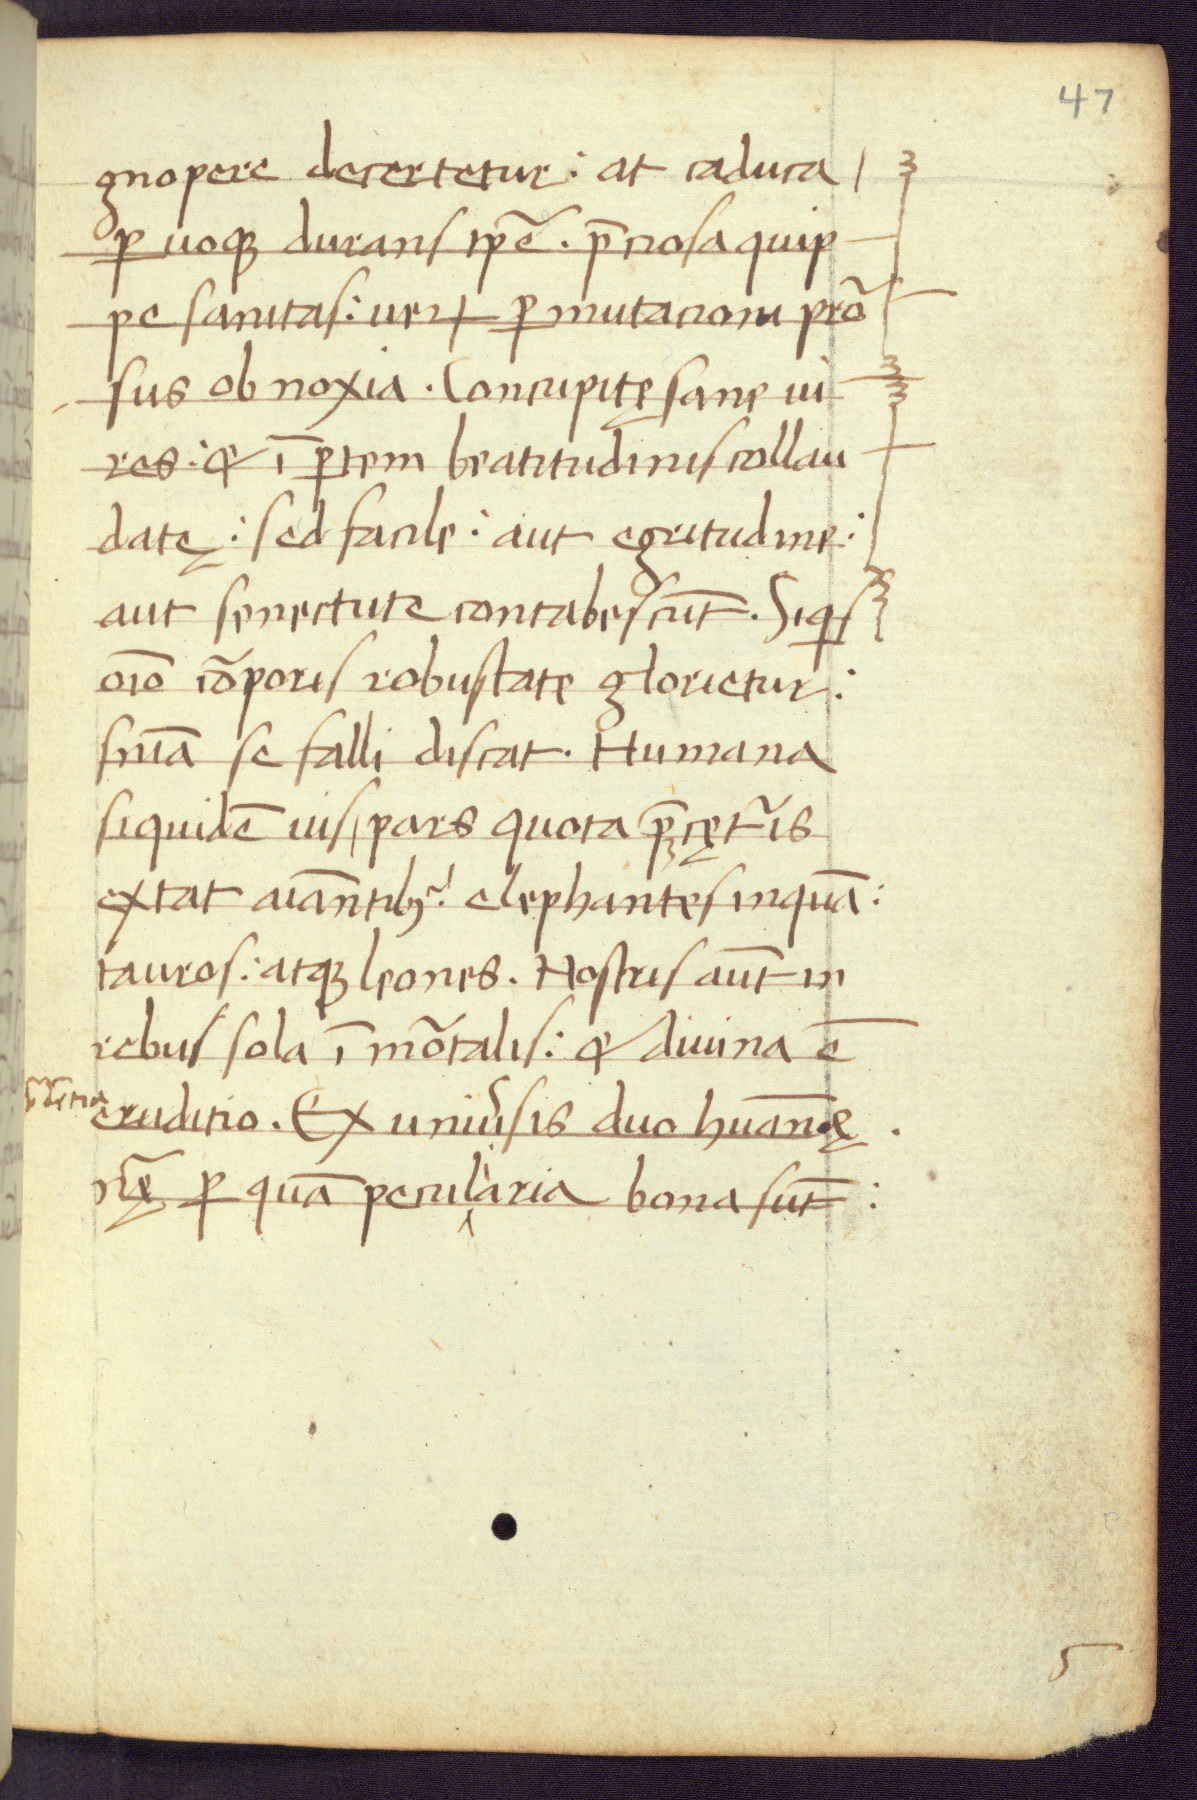 47
gnopere decertetur: at caduca
ꝑuoqꝫ durans ipē. p̄ciosa quip
pe sanitas: uerū ꝑmutacioni prō
sus obnoxia. Concupitę sane ui
res: & ī ꝑtem beatitudinis collau
datę: sed facile: aut egritudine:
aut senectute contabescūt. Siqs
oīo cōporis robustate glorietur:
sūa se falli discat. Humana
siquidē uis pars quota p̄ cęt̃is
extat aīantibꝫ: elephantes inquā:
tauros: atqꝫ leones. Nostris aūt in
rebus sola īmōtalis: & diuina ē
eruditio. Ex uniũsis duo huānę
nr̄ę ꝑquā peculiaria bona sūt:
5